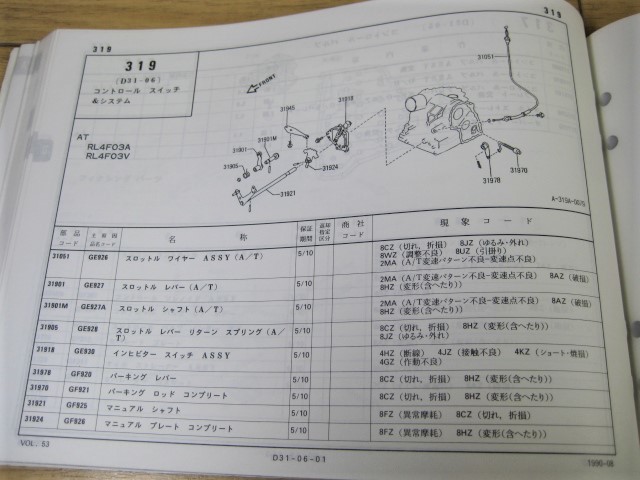 319
319
319
(D31-06)
コントロール スイッチ
&システム
AT
RL4F03A
RL4F03V
FRONT
31051
31945
31918
31901M
31901
31905
31924
31921
31970
31978
A-319A-0070
部品
コード
主要因
品名コード
名 称
保証
期間
商社
コード
現象コード
31051 GE926 スロットル ワイヤー ASSY(A/T) 5/10 8CZ(切れ,折損) 8JZ(ゆるみ・外れ)
8WZ(調整不良) 8UZ(引掛り)
2MA(A/T変速パターン不良=変速点不良)
31901 GE927 スロットル レバー(A/T) 5/10 2MA(A/T変速パターン不良=変速点不良) 8AZ(破損)
8HZ(変形(含へたり))
31901M GE927A スロットル シャフト(A/T) 5/10 2MA(A/T変速パターン不良=変速点不良) 8AZ(破損)
8HZ(変形(含へたり))
31905 GE928 スロットル レバー リターン スプリング(A/T) 5/10 8CZ(切れ,折損) 8HZ(変形(含へたり))
8JZ(ゆるみ・外れ)
31918 GE930 インヒビター スイッチ ASSY 5/10 4HZ(断線) 4JZ(接触不良) 4KZ(ショート・焼損)
4GZ(作動不良)
31978 GF920 パーキング レバー 5/10 8CZ(切れ,折損) 8HZ(変形(含へたり))
31970 GF921 パーキング ロッド コンプリート 5/10 8CZ(切れ,折損) 8HZ(変形(含へたり))
31921 GF925 マニュアル シャフト 5/10 8FZ(異常摩耗) 8CZ(切れ,折損)
31924 GF926 マニュアル プレート コンプリート 5/10 8FZ(異常摩耗) 8HZ(変形(含へたり))
VOL. 53
D31-06-01
1990-08